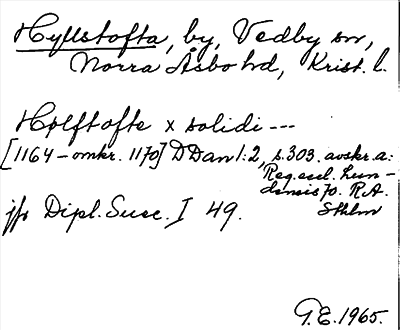 Hyllstofta, by, Vedby sn,
Norra Åsbo hd, Krist. l.
Hylftofte x solidi ---
[1164 - omkr. 1170] DDan 1:2, s. 303. avskr. a:
Reg. eccl. Lun-
densis 70. R.A.
Sthlm
jfr Dipl. Suec. I 49.
T.E. 1965.